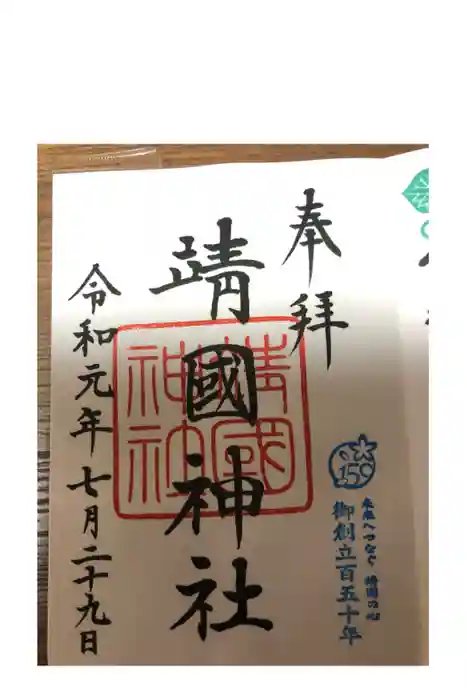 奉拝
靖國神社
靖國
神社
令和元年七月二十九日
150
未来へつなぐ 靖国の心
御創立百五十年